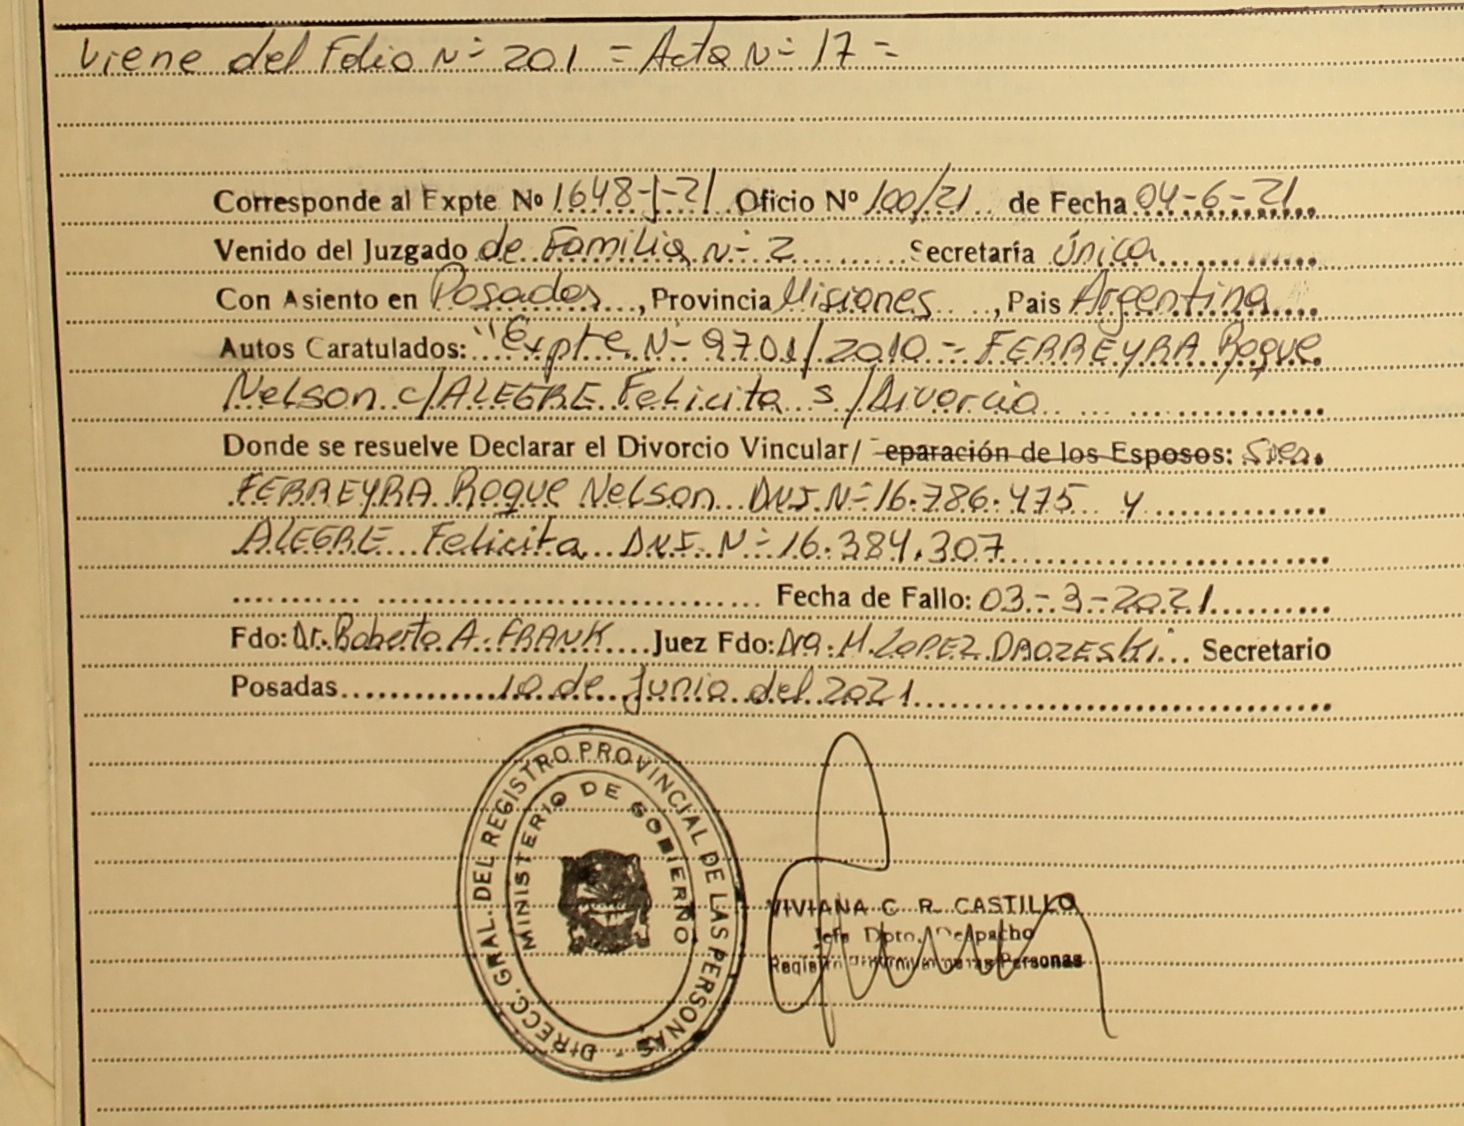 Viene del Folio N° 201 = Acta N° 17 =
Corresponde al Expte Nº 1648-J-21 Oficio Nº 100/21 de Fecha 04-6-21
Venido del Juzgado de Familia N° 2 Secretaría Única
Con Asiento en Posadas, Provincia Misiones, Pais Argentina
Autos Caratulados: "Expte N° 9701/2010 - FERREYRA Roque
Nelson c/ALEGRE Felicita s/Divorcio
Donde se resuelve Declarar el Divorcio Vincular/ eparación de los Esposos:
FERREYRA Roque Nelson D.N.I. N° 16.786.475 y
ALEGRE Felicita D.N.I. N° 16.384.307
Fecha de Fallo: 03-3-2021
Fdo: Dr. Roberto A. FRANK Juez Fdo: Dra. M. LOPEZ Secretario
Posadas 10 de Junio del 2021
DIRECC. GRAL. DEL REGISTRO PROVINCIAL DE LAS PERSONAS -
MINISTERIO DE GOBIERNO
VIVIANA C R. CASTILLO
Jefa Dpto. Despacho
Personas